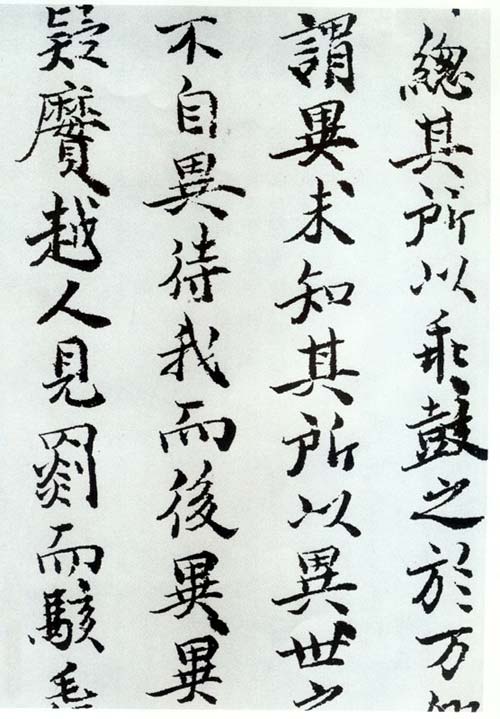 總其所以乖鼓之於万
謂異未知其所以異世之
不自異待我而後異異
疑黂越人見罽而駭毳